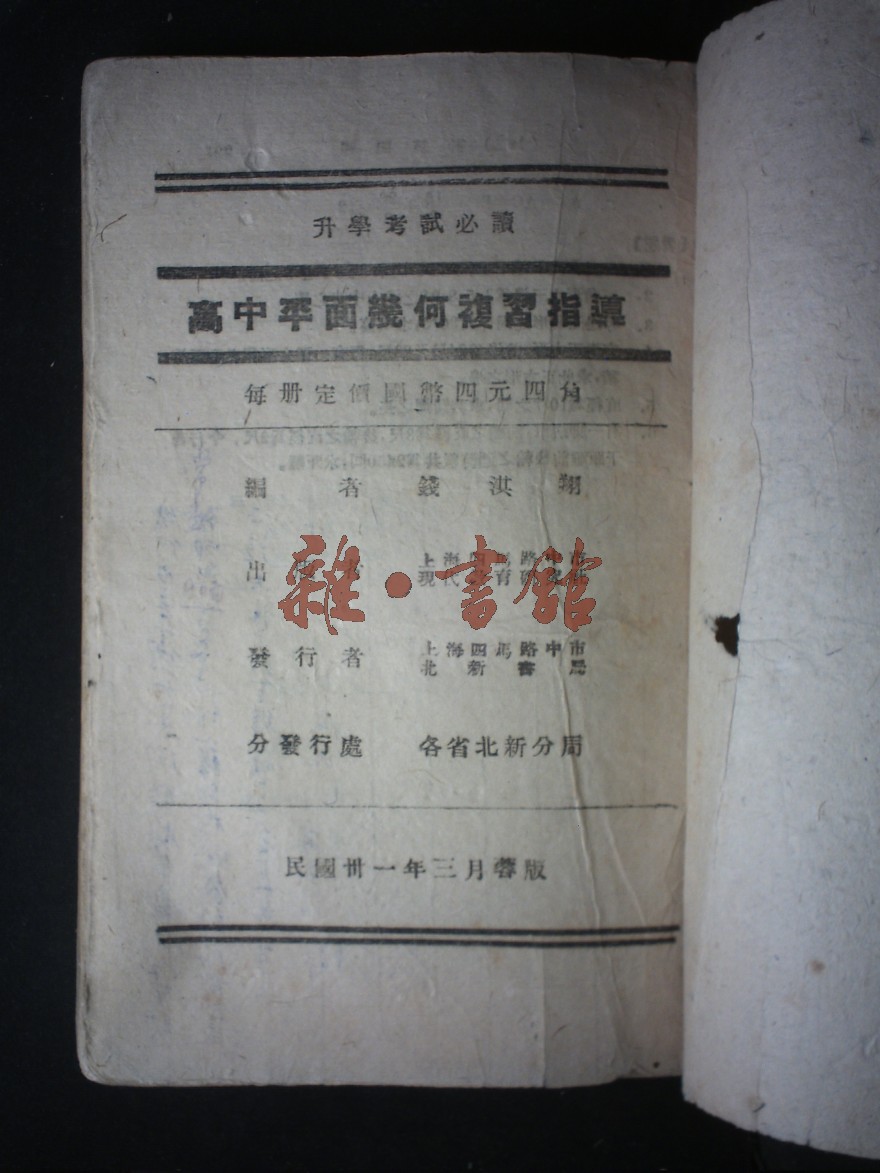 升學考試必讀
高中平面幾何複習指導
每册定價國幣四元四角
編者 錢淇翔
出版者 上海四馬路中市
現代教育研究社
雜·書館
發行者 上海四馬路中市
北新書局
分發行處 各省北新分局
民國卅一年三月蓉版